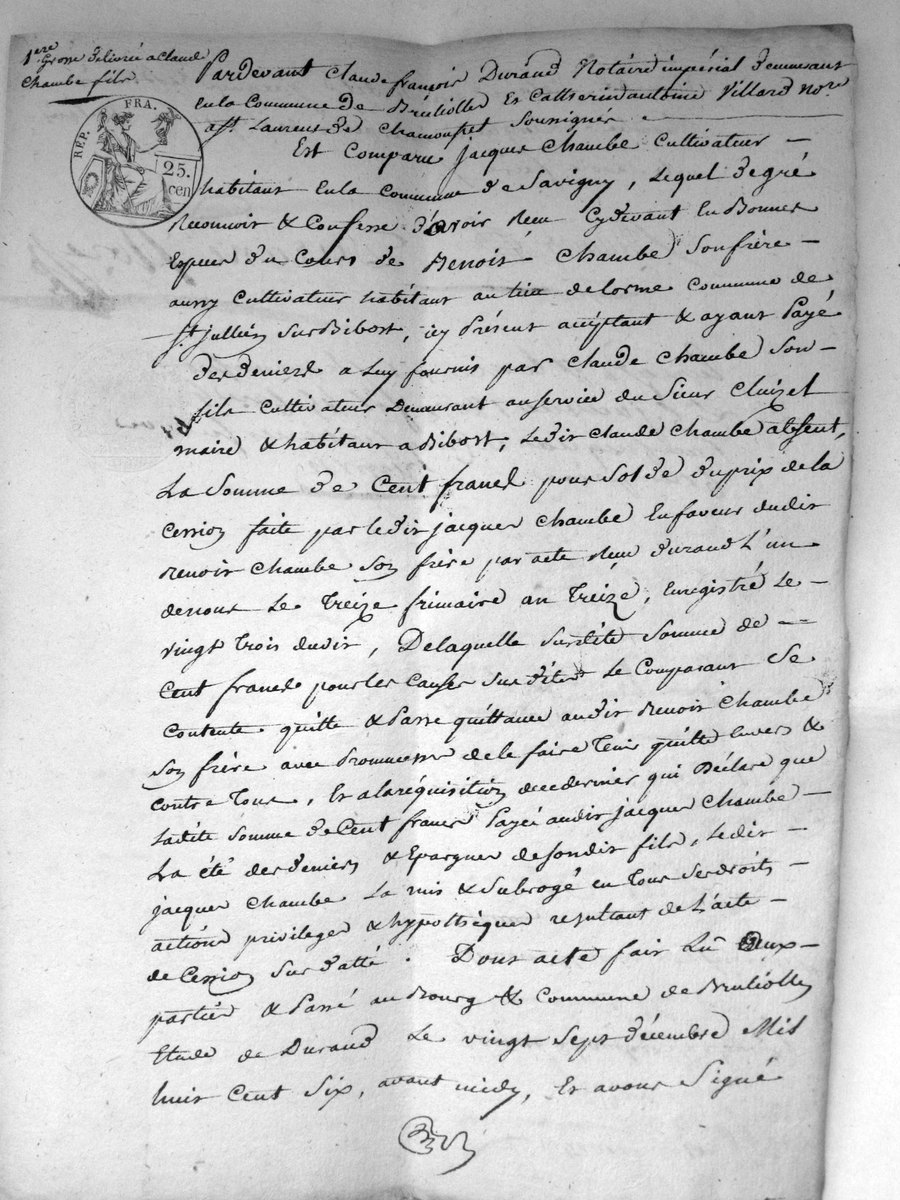 1ere
Grosse delivrée a Claude
Chambe fils
RÉP. FRA.
25.
cen
Pardevant Claude françois Durand Notaire impérial demeurant
en la Commune de Brulliolles et Catherin antoine Villard Nore
a st. Laurens de Chamousset Soussignés
Est Comparu Jacques Chambe Cultivateur —
habitant en la Commune de Savigny, lequel de gré
Reconnoit & Confesse d'avoir Reçu Cydevant en Bonnes
Especes du Cours de Benoit Chambe Son frère —
aussy Cultivateur habitant au lieu de lorme Commune de
— st. jullien Sur Bibost, icy Présent acceptant & ayant Payé
des deniers a luy fournis par Claude Chambe Son —
fils Cultivateur Demeurant au service du Sieur Cluzel
maire & habitant a Bibost, ledit Claude Chambe absent,
La Somme de Cent francs pour Solde du prix de la
Cession faite par ledit jacques Chambe en faveur dudit
Benoit Chambe Son frère par acte Reçu Durand L'un
de nous le Treize frimaire an Treize, enregistré Le —
vingt Trois dudit, De laquelle susdite Somme de —
Cent francs pour les Causes Sus dites le Comparant Se
Contente quitte & Passe quittance audit Benoit Chambe
Son frère avec Promesse de le faire Tenir quitte envers &
contre Tous, Et a la réquisition de ce dernier qui Déclare que
Ladite Somme de Cent francs Payée audit jacques Chambe —
L'a été des deniers & Epargnes de Sondit fils, Ledit —
jacques Chambe L'a mis & Subrogé en Tous Ses droits —
actions privileges & hypothèques resultant de L'acte —
de Cession Sus datté. Dont acte fait Lu aux —
parties & Passé au Bourg & Commune de Brulliolles
Etude de Durand Le vingt Sept décembre Mil
huit Cent Six, avant midy, Et avons Signé